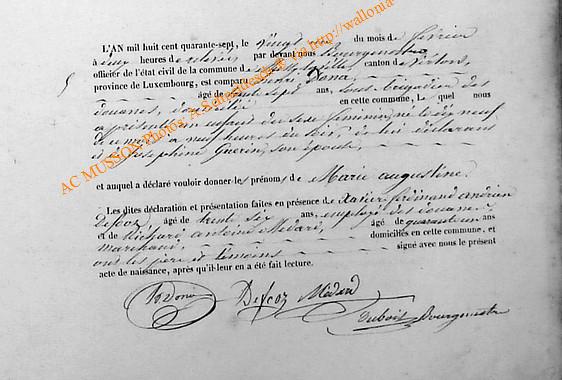 L'AN mil huit cent quarante-sept, le vingt du mois de février
à heures de par devant nous Bourgmestre
officier de l'état civil de la commune de canton de Virton,
province de Luxembourg, est comparu Dona,
âgé de trente sept ans, sous-brigadier des
douanes, domicilié en cette commune, le quel nous
a présenté un enfant du sexe féminin, né le dix neuf
à neuf heures du soir, de lui déclarant
et Josephine Guerin, son épouse,
et auquel a déclaré vouloir donner les prénoms de Marie augustine.
Les dites déclaration et présentation faites en présence de Xavier ferdinand andrien
Defooz, âgé de trente six ans, employé des douanes
et de Richard, antoine Médard, âgé de quarante un ans
marchand, domiciliés en cette commune, et
ont les père et témoins signé avec nous le présent
acte de naissance, après qu'il leur en a été fait lecture.
Dona Defooz Médard
Dubois Bourgmestre
AC MUSSON Photos: A. via http://wallonia